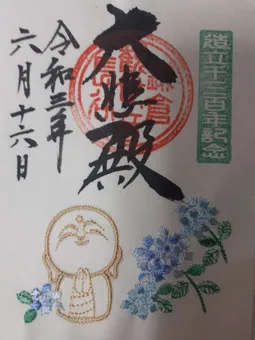 造立千三百年記念
大悲殿
令和三年
六月十六日